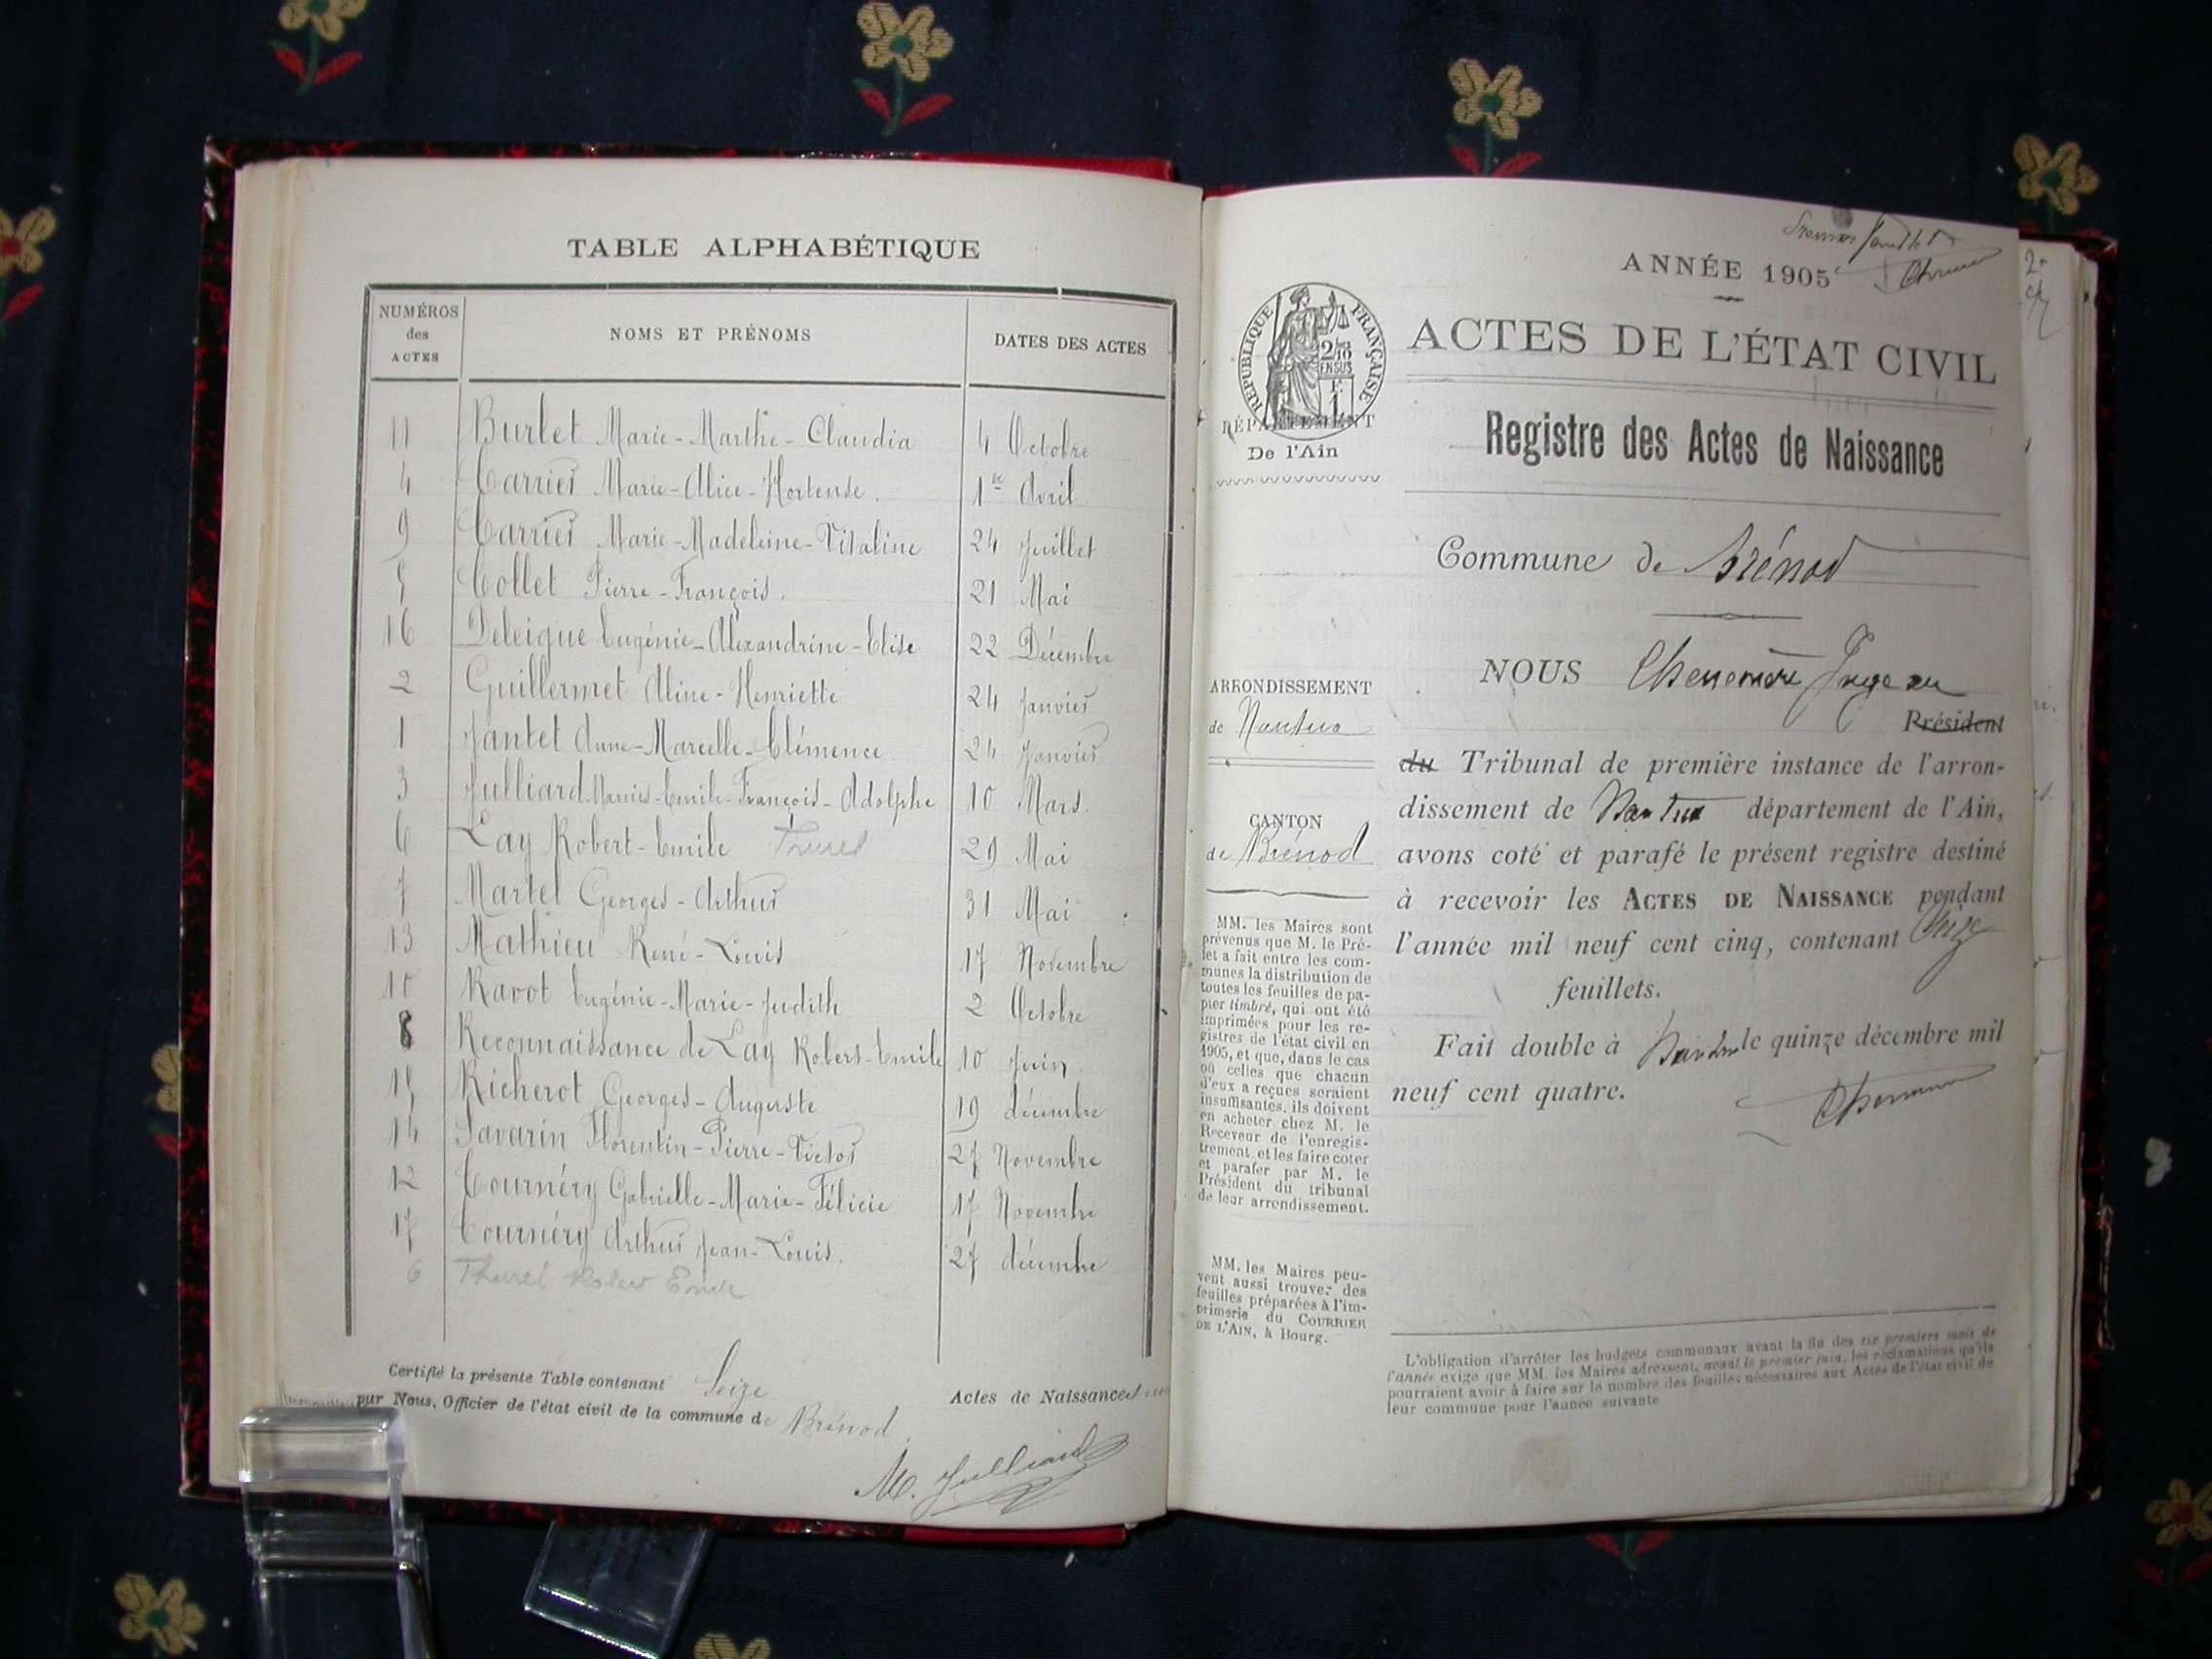 TABLE ALPHABÉTIQUE
NUMÉROS des ACTES
NOMS ET PRÉNOMS
DATES DES ACTES
11 Burlet Marie-Marthe-Claudia 4 Octobre
4 Carrier Marie-Alice-Hortense. 1er Avril
9 Carrier Marie-Madeleine-Vitaline 24 Juillet
5 Collet Pierre-François. 21 Mai
16 Deleigue Eugénie-Alexandrine-Elise 22 Décembre
2 Guillermet Aline-Henriette 24 Janvier
1 Jantet Anne-Marcelle-Clémence 24 Janvier
3 Julliard Marius-Emile-François-Adolphe 10 Mars.
6 Lay Robert-Emile Thurel 29 Mai
7 Martel Georges-Arthur 31 Mai
13 Mathieu René-Louis 17 Novembre
10 Ravot Eugénie-Marie-Judith 2 Octobre
8 Reconnaissance de Lay Robert-Emile 10 Juin
15 Richerot Georges-Auguste 19 décembre
14 Savarin Florentin-Pierre-Victor 27 Novembre
12 Tournéry Gabrielle-Marie-Félicie 17 Novembre
17 Tournéry Arthur Jean-Louis. 27 décembre
6 Thurel Robert Emile
Certifié la présente Table contenant Seize Actes de Naissance
par Nous, Officier de l'état civil de la commune de Brénod.
M. Julliard
Premier feuillet
ANNÉE 1905
2e
RÉPUBLIQUE FRANÇAISE
2/10
EN SUS
F.
1
ACTES DE L'ÉTAT CIVIL
DÉPARTEMENT
De l'Ain
Registre des Actes de Naissance
Commune de Brénod
NOUS Juge au
Président
du Tribunal de première instance de l'arron-
dissement de Nantua département de l'Ain,
avons coté et parafé le présent registre destiné
à recevoir les ACTES DE NAISSANCE pendant
l'année mil neuf cent cinq, contenant Onze
feuillets.
Fait double à Nantua le quinze décembre mil
neuf cent quatre.
ARRONDISSEMENT
de Nantua
CANTON
de Brénod
MM. les Maires sont
prévenus que M. le Pré-
fet a fait entre les com-
munes la distribution de
toutes les feuilles de pa-
pier timbré, qui ont été
imprimées pour les re-
gistres de l'état civil en
1905, et que, dans le cas
où celles que chacun
d'eux a reçues seraient
insuffisantes, ils doivent
en acheter chez M. le
Receveur de l'enregis-
trement et les faire coter
et parafer par M. le
Président du tribunal
de leur arrondissement.
MM. les Maires peu-
vent aussi trouver des
feuilles préparées à l'im-
primerie du COURRIER
DE L'AIN, à Bourg.
L'obligation d'arrêter les budgets communaux avant la fin des six premiers mois de
l'année exige que MM. les Maires adressent, avant le premier juin, les réclamations qu'ils
pourraient avoir à faire sur le nombre des feuilles nécessaires aux Actes de l'état civil de
leur commune pour l'année suivante